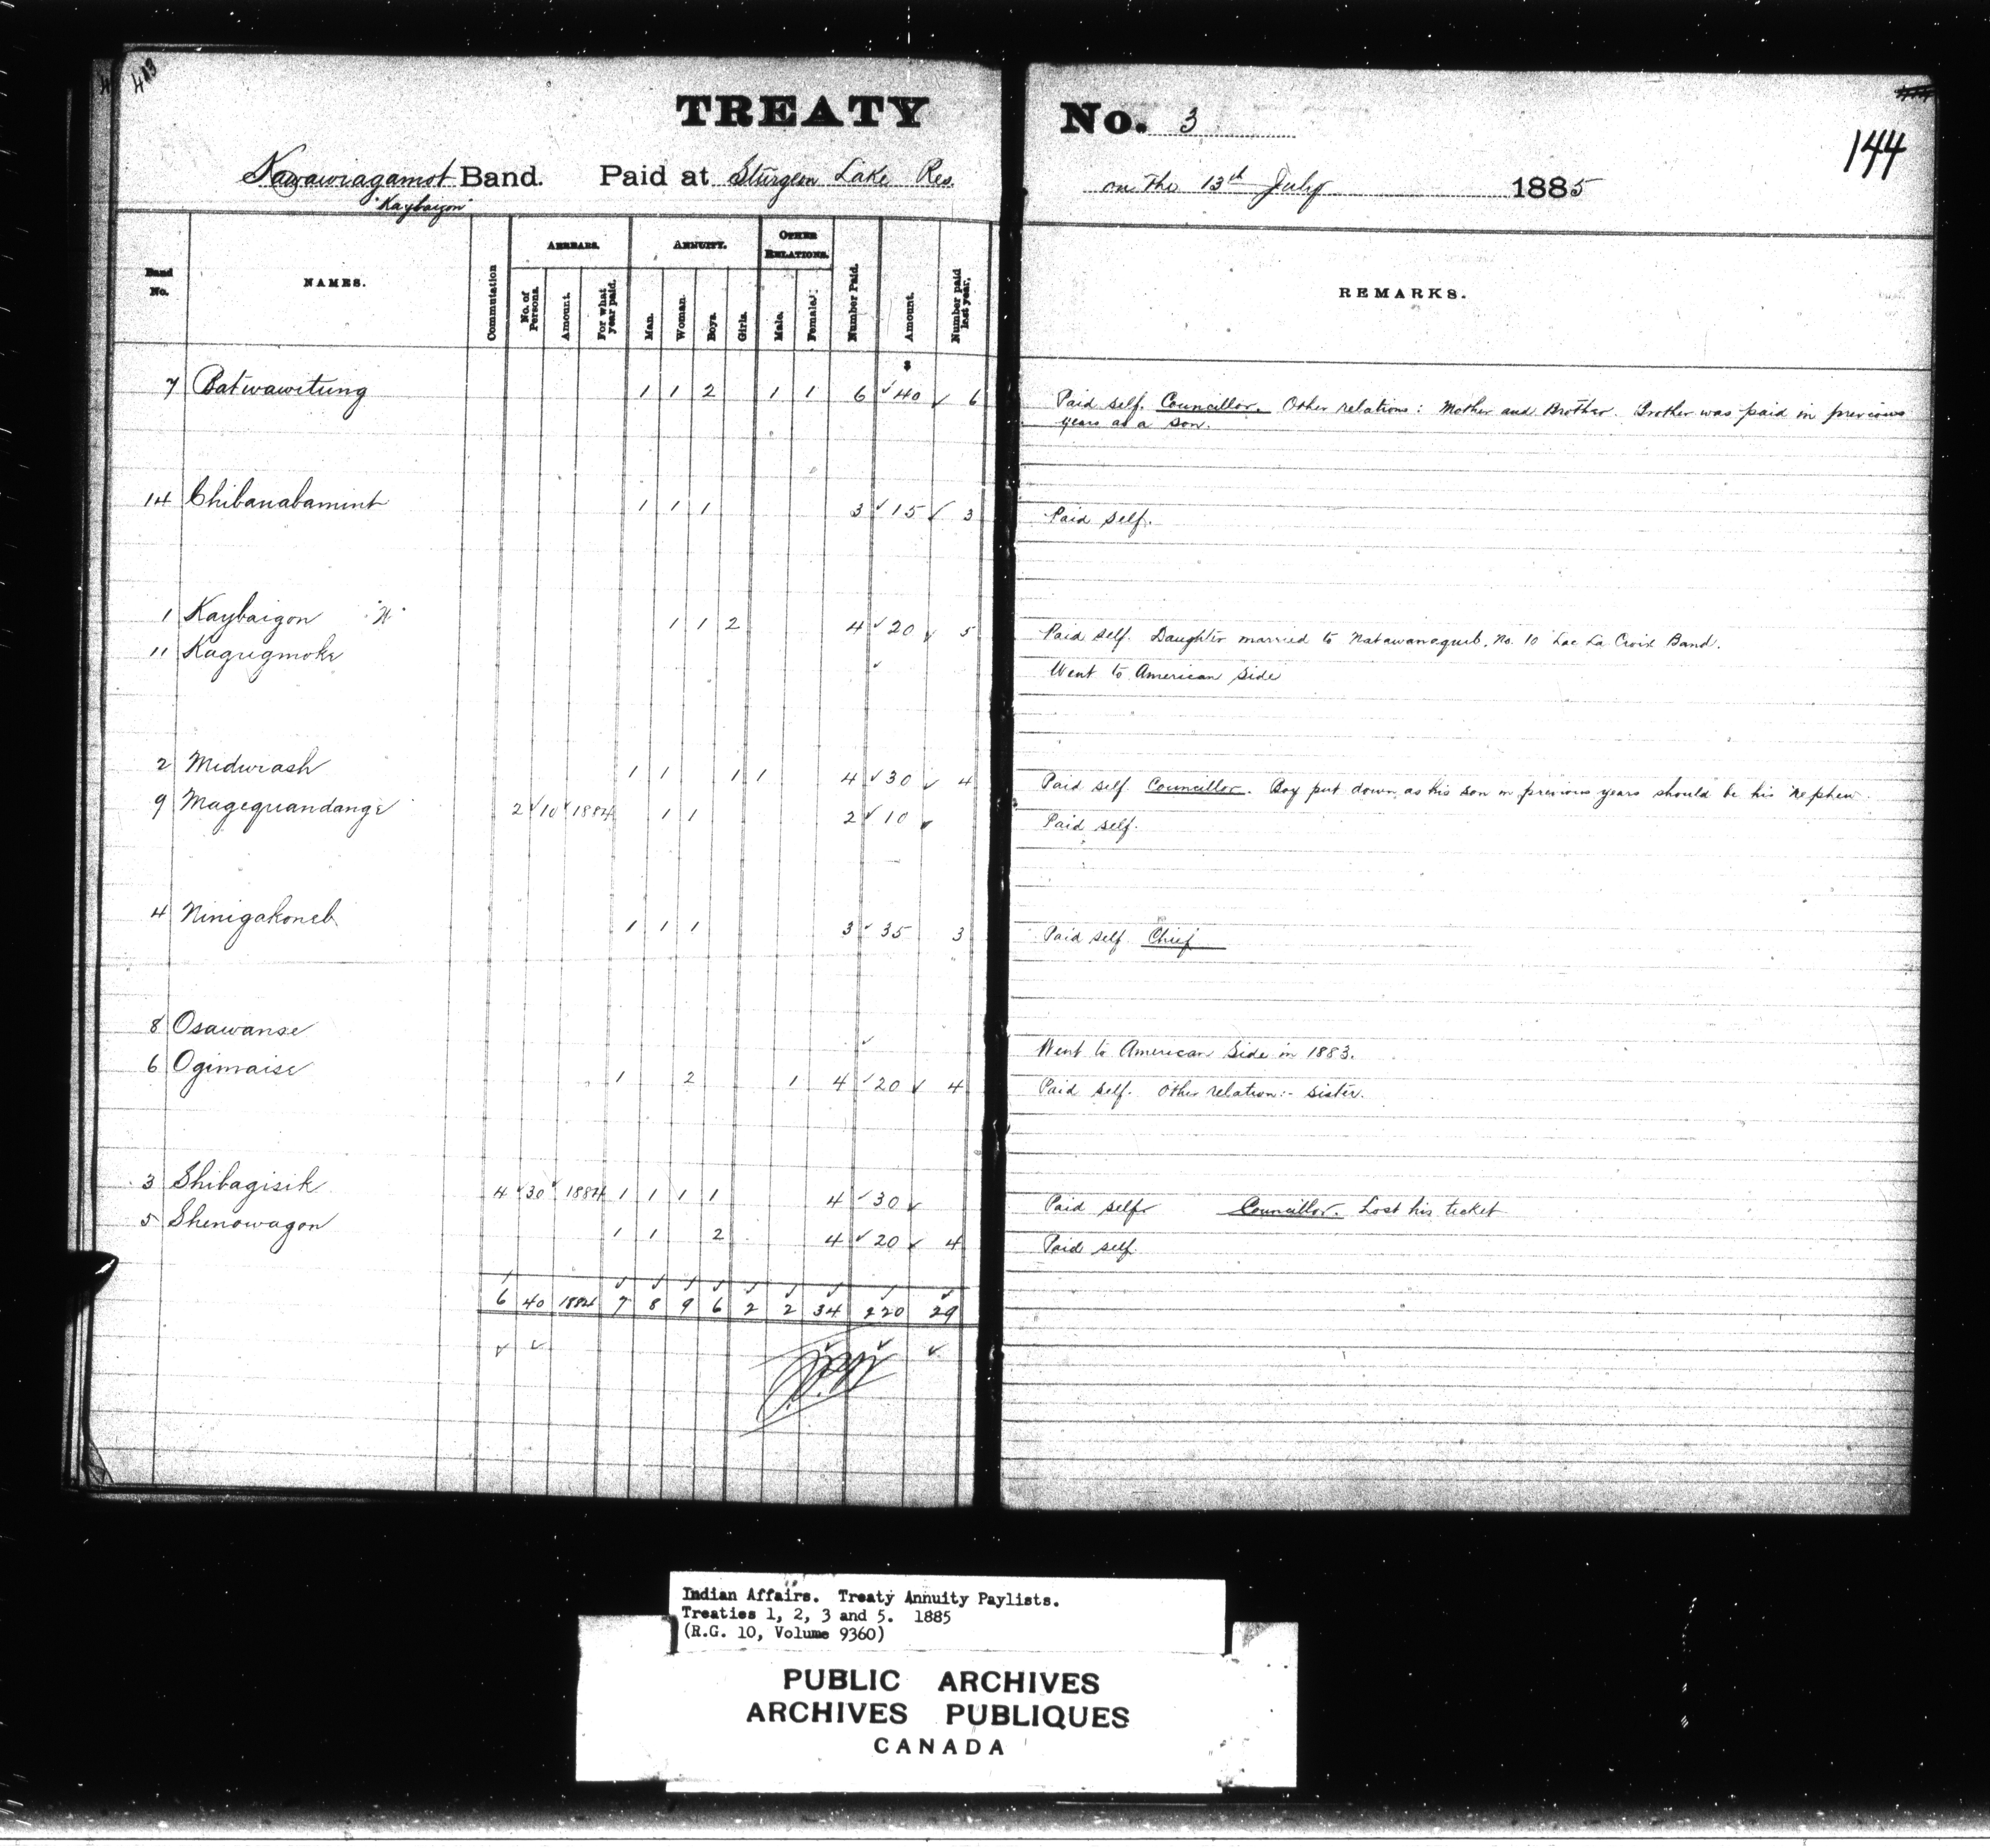 413
TREATY No. 3
144
Kawawiagamot Band. Paid at Sturgeon Lake Res. on the 13th July 1885
"Kaybaigon"
Band No. NAMES. Commutation ARREARS. No. of Persons. Amount. For what year paid. ANNUITY. Man. Woman. Boys. Girls. OTHER RELATIONS. Male. Female. Number Paid. Amount. Number paid last year. REMARKS.
$
7 Batwawetung 1 1 2 1 1 6 40 6 Paid self. Councillor. Other relations: Mother and Brother. Brother was paid in previous
years as a son.
14 Chibanabamint 1 1 1 3 15 3 Paid self.
1 Kaybaigon "W" 1 1 2 4 20 5 Paid self. Daughter married to Natawanaquib. No. 10 Lac La Croix Band.
11 Kagiigmoke Went to American Side
2 Midwiash 1 1 1 1 4 30 4 Paid self Councillor. Boy put down as his son in previous years should be his nephew.
9 Magequandange 2 10 1884 1 1 2 10 Paid self.
4 Ninigakoneb 1 1 1 3 35 3 Paid self Chief
8 Osawanse Went to American Side in 1883.
6 Ogimaise 1 2 1 4 20 4 Paid self. Other relation:- sister.
3 Shibagisik 4 30 1884 1 1 1 1 4 30 Paid self Councillor. Lost his ticket
5 Shenowagon 1 1 2 4 20 4 Paid self.
6 40 1884 7 8 9 6 2 2 34 220 29
Indian Affairs. Treaty Annuity Paylists.
Treaties 1, 2, 3 and 5. 1885
(R.G. 10, Volume 9360)
PUBLIC ARCHIVES
ARCHIVES PUBLIQUES
CANADA